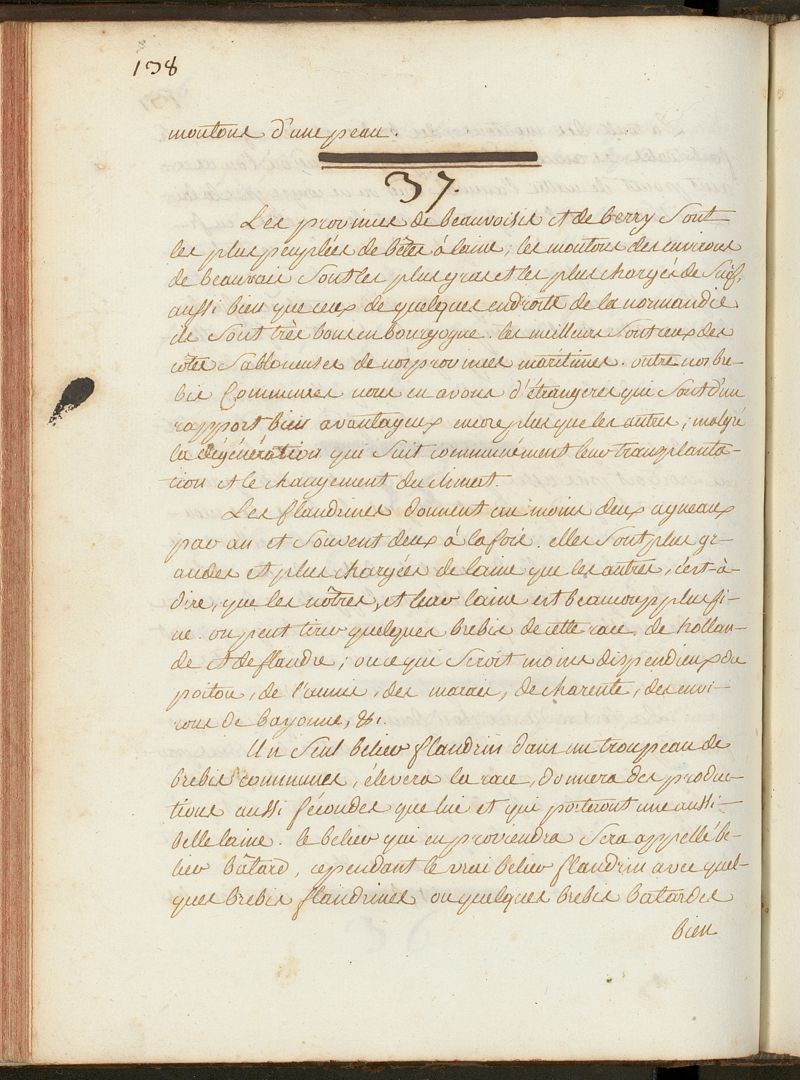 138
moutons d'une peau.
37.
Les provinces de beauvoisis et de berry sont
les plus peuplées de bêtes à laine; les moutons des environs
de beauvais sont les plus gras et les plus chargés de suif,
aussi bien que ceux de quelques endroits de la normandie
ils sont très bons en bourgogne. les meilleurs sont ceux des
côtes sabloneuses de nos provinces maritimes. outre nos bre-
bis communes nous en avons d'étrangeres qui sont d'un
rapport bien avantageux encore plus que les autres; malgré
la dégénération qui suit communément leur transplanta-
tion et le changement du climat.
Les flandrines donnent au moins deux agneaux
par an et souvent deux à la fois. elles sont plus gr-
andes et plus chargées de laine que les autres, c'est-à-
dire, que les nôtres, et leur laine est beaucoup plus fi-
ne. on peut tirer quelques brebis de cette race, de hollan-
de et de flandre; ou ce qui seroit moins dispendieux du
poitou, de l'aunis, des marais, de charente, des envi-
rons de bayonne, &c.
Un seul belier flandrin dans un troupeau de
brebis communes, élevera la race, donnera des produc-
tions aussi fécondes que lui et qui porteront une aussi
belle laine. le belier qui en proviendra sera appellé be-
lier bâtard, cependant le vrai belier flandrin avec quel-
ques brebis flandrines ou quelques brebis batardes
bien